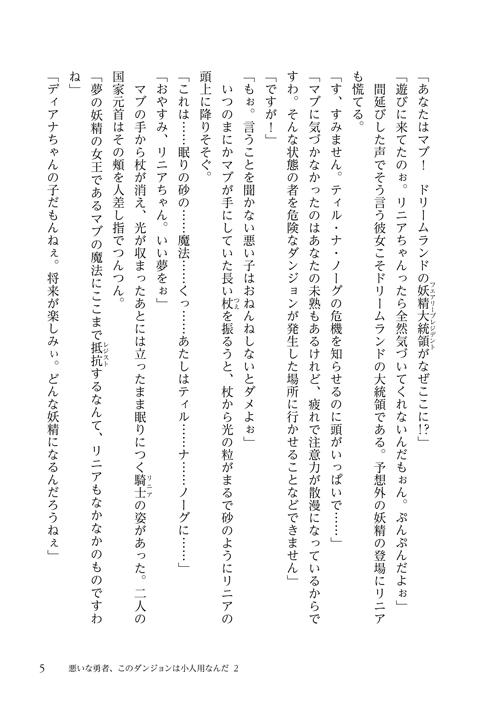 「あなたはマブ！　ドリームランドの妖精大統領がなぜここに!?」
「遊びに来てたのぉ。リニアちゃんったら全然気づいてくれないんだもぉん。ぷんぷんだよぉ」
　間延びした声でそう言う彼女こそドリームランドの大統領である。予想外の妖精の登場にリニア
も慌てる。
「す、すみません。ティル・ナ・ノーグの危機を知らせるのに頭がいっぱいで……」
「マブに気づかなかったのはあなたの未熟もあるけれど、疲れで注意力が散漫になっているからで
すわ。そんな状態の者を危険なダンジョンが発生した場所に行かせることなどできません」
「ですが！」
「もぉ。言うことを聞かない悪い子はおねんねしないとダメよぉ」
　いつのまにかマブが手にしていた長い杖を振るうと、杖から光の粒がまるで砂のようにリニアの
頭上に降りそそぐ。
「これは……眠りの砂の……魔法……くっ……あたしはティル……ナ……ノーグに……」
「おやすみ、リニアちゃん。いい夢をぉ」
　マブの手から杖が消え、光が収まったあとには立ったまま眠りにつく騎士リニアの姿があった。二人の
国家元首はその頬を人差し指でつんつん。
「夢の妖精の女王であるマブの魔法にここまで抵抗レジストするなんて、リニアもなかなかのものですわ
ね」
「ディアナちゃんの子だもんねぇ。将来が楽しみぃ。どんな妖精になるんだろうねぇ」
5　悪いな勇者、このダンジョンは小人用なんだ 2